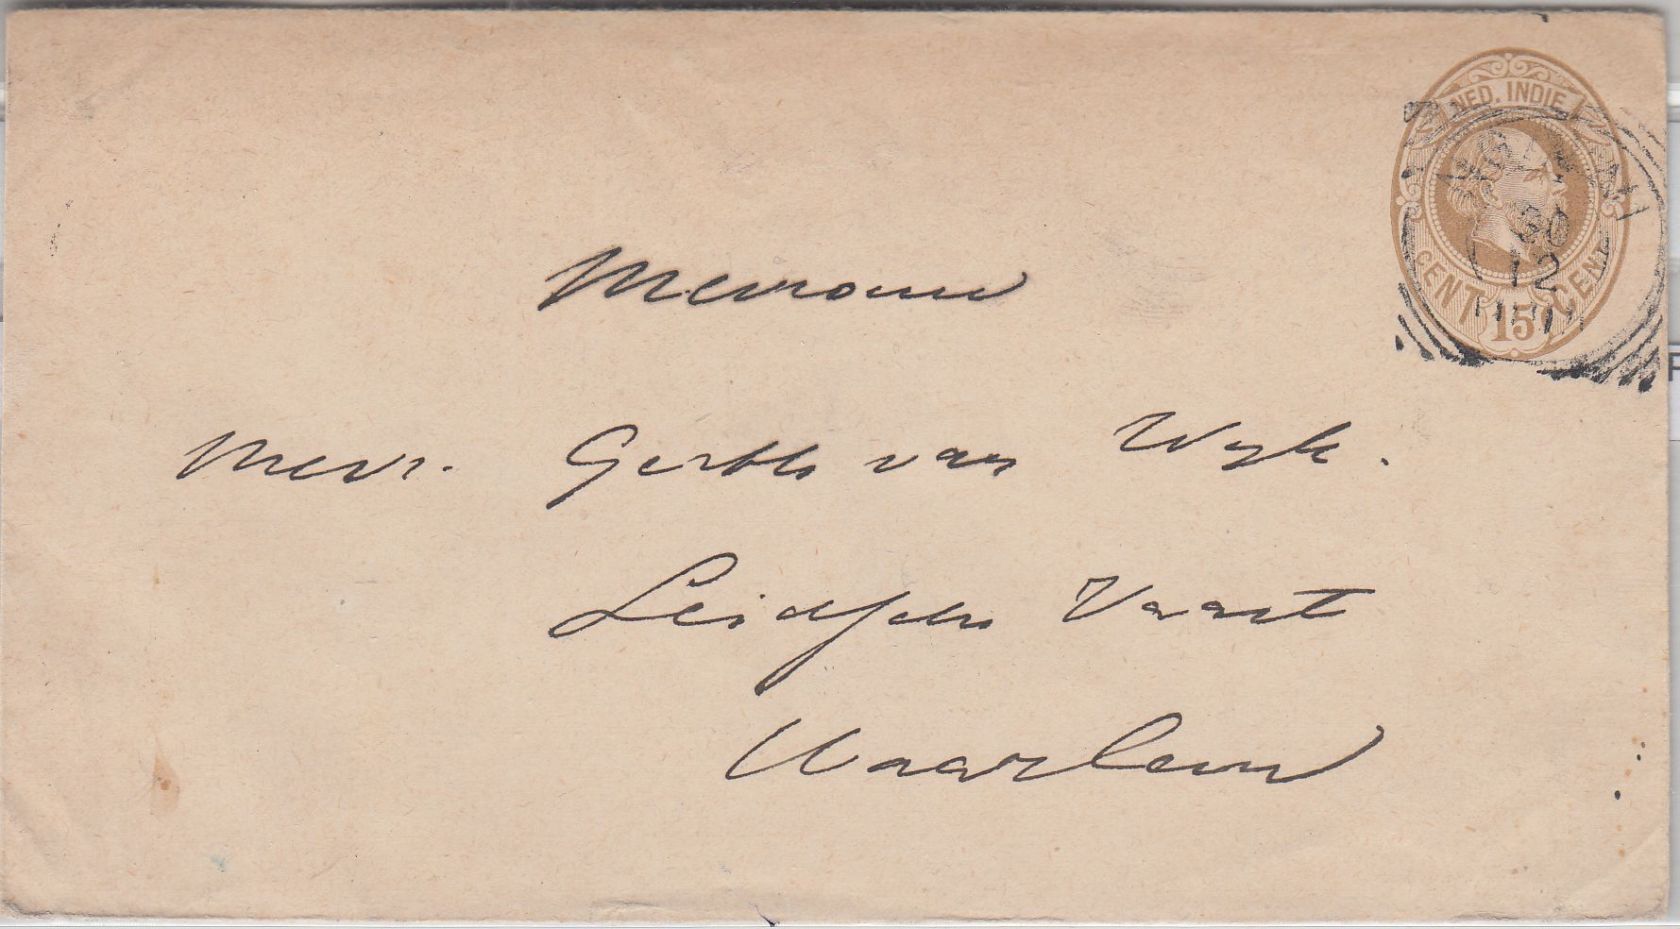 NED. INDIE
CENT 15 CENT
12
Mevrouw
Mevr. Gerth van Wyk.
Leidsche Vaart
Haarlem